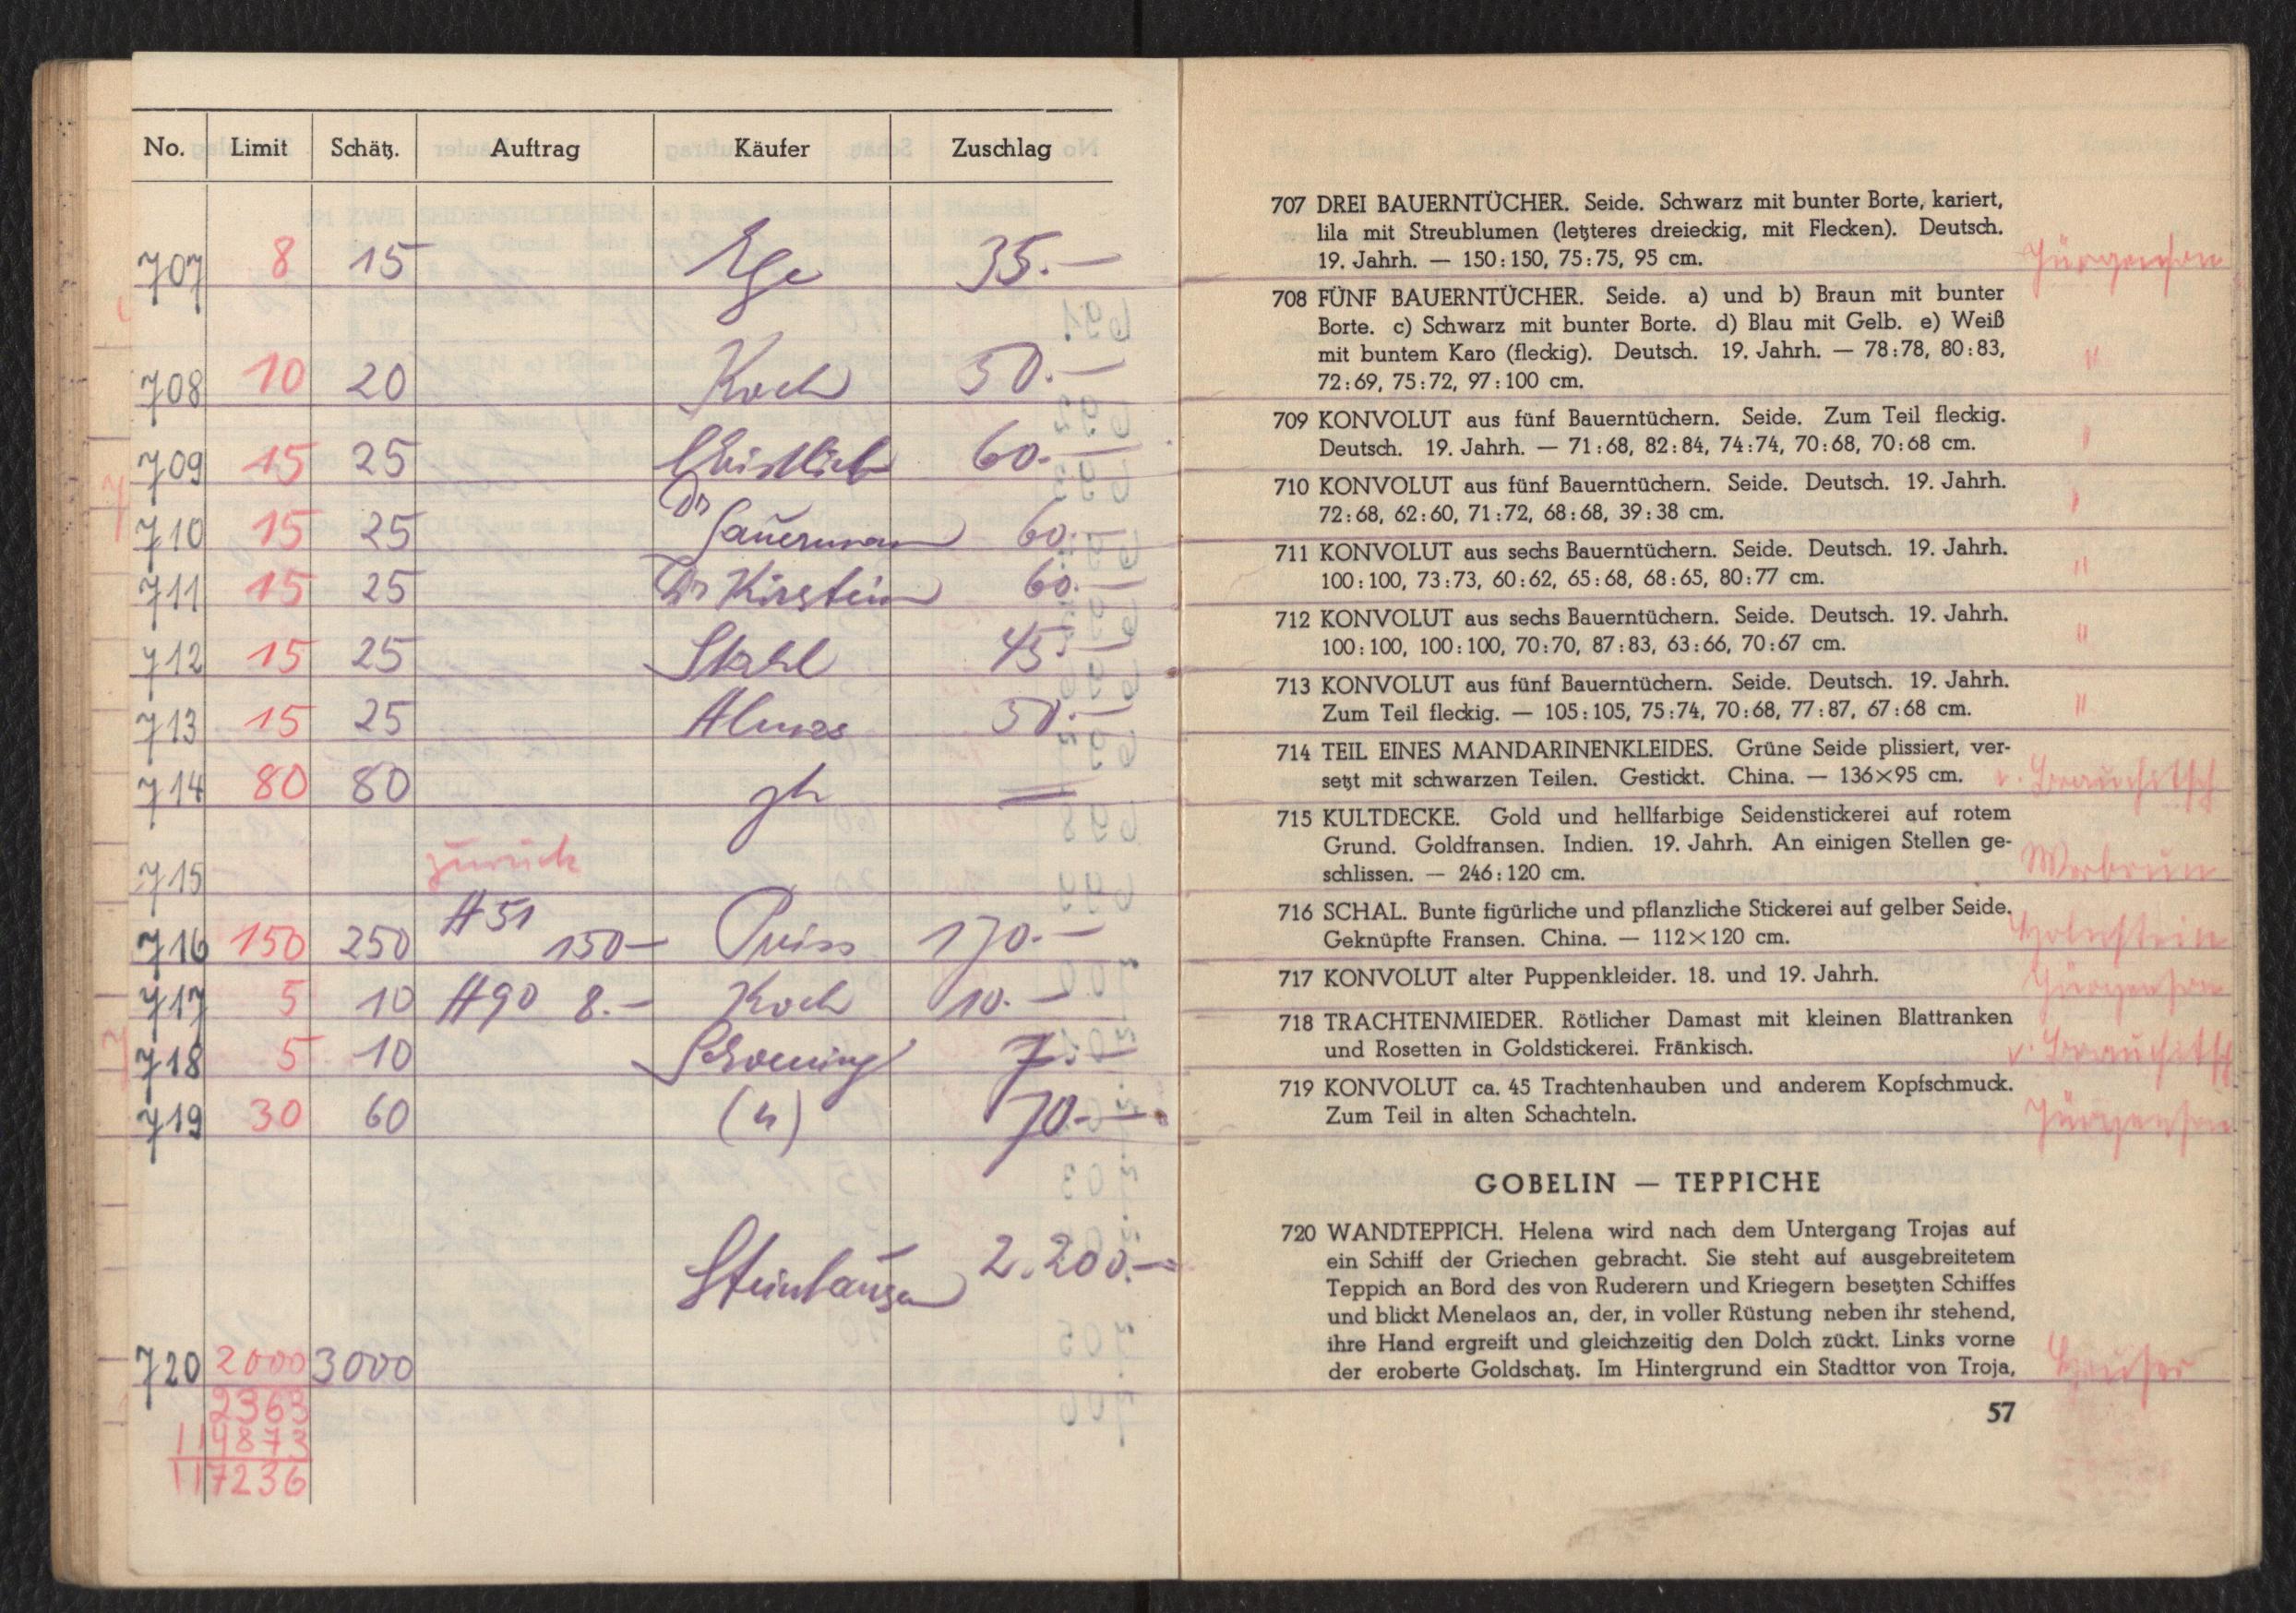 No. Limit Schätz. Auftrag Käufer Zuschlag
707 8 15 Ege 35.—
708 10 20 Koch 50.—
709 15 25 60.—
710 15 25 Dr Sauermann 60.—
711 15 25 Dr Kirstein 60.—
712 15 25 Stahl 45.—
713 15 25 Almas 50.—
714 80 80 —
715 zurück
716 150 250 A 51 150— 170.—
717 5 10 A 90 8.— Koch 10.—
718 5 10 7.—
719 30 60 70.—
Steinhausen 2.200.—
720 2000 3000
2363
114873
117236
707 DREI BAUERNTÜCHER. Seide. Schwarz mit bunter Borte, kariert,
lila mit Streublumen (letzteres dreieckig, mit Flecken). Deutsch.
19. Jahrh. — 150:150, 75:75, 95 cm. Jürgensen
708 FÜNF BAUERNTÜCHER. Seide. a) und b) Braun mit bunter
Borte. c) Schwarz mit bunter Borte. d) Blau mit Gelb. e) Weiß
mit buntem Karo (fleckig). Deutsch. 19. Jahrh. — 78:78, 80:83, "
72:69, 75:72, 97:100 cm.
709 KONVOLUT aus fünf Bauerntüchern. Seide. Zum Teil fleckig.
Deutsch. 19. Jahrh. — 71:68, 82:84, 74:74, 70:68, 70:68 cm. "
710 KONVOLUT aus fünf Bauerntüchern. Seide. Deutsch. 19. Jahrh.
72:68, 62:60, 71:72, 68:68, 39:38 cm. "
711 KONVOLUT aus sechs Bauerntüchern. Seide. Deutsch. 19. Jahrh.
100:100, 73:73, 60:62, 65:68, 68:65, 80:77 cm. "
712 KONVOLUT aus sechs Bauerntüchern. Seide. Deutsch. 19. Jahrh.
100:100, 100:100, 70:70, 87:83, 63:66, 70:67 cm. "
713 KONVOLUT aus fünf Bauerntüchern. Seide. Deutsch. 19. Jahrh.
Zum Teil fleckig. — 105:105, 75:74, 70:68, 77:87, 67:68 cm. "
714 TEIL EINES MANDARINENKLEIDES. Grüne Seide plissiert, ver-
setzt mit schwarzen Teilen. Gestickt. China. — 136×95 cm. v. Brauchitsch
715 KULTDECKE. Gold und hellfarbige Seidenstickerei auf rotem
Grund. Goldfransen. Indien. 19. Jahrh. An einigen Stellen ge-
schlissen. — 246:120 cm.
716 SCHAL. Bunte figürliche und pflanzliche Stickerei auf gelber Seide.
Geknüpfte Fransen. China. — 112×120 cm. Holnstein
717 KONVOLUT alter Puppenkleider. 18. und 19. Jahrh. Jürgensen
718 TRACHTENMIEDER. Rötlicher Damast mit kleinen Blattranken
und Rosetten in Goldstickerei. Fränkisch. v. Brauchitsch
719 KONVOLUT ca. 45 Trachtenhauben und anderem Kopfschmuck.
Zum Teil in alten Schachteln. Jürgensen
GOBELIN — TEPPICHE
720 WANDTEPPICH. Helena wird nach dem Untergang Trojas auf
ein Schiff der Griechen gebracht. Sie steht auf ausgebreitetem
Teppich an Bord des von Ruderern und Kriegern besetzten Schiffes
und blickt Menelaos an, der, in voller Rüstung neben ihr stehend,
ihre Hand ergreift und gleichzeitig den Dolch zückt. Links vorne
der eroberte Goldschatz. Im Hintergrund ein Stadttor von Troja,
57